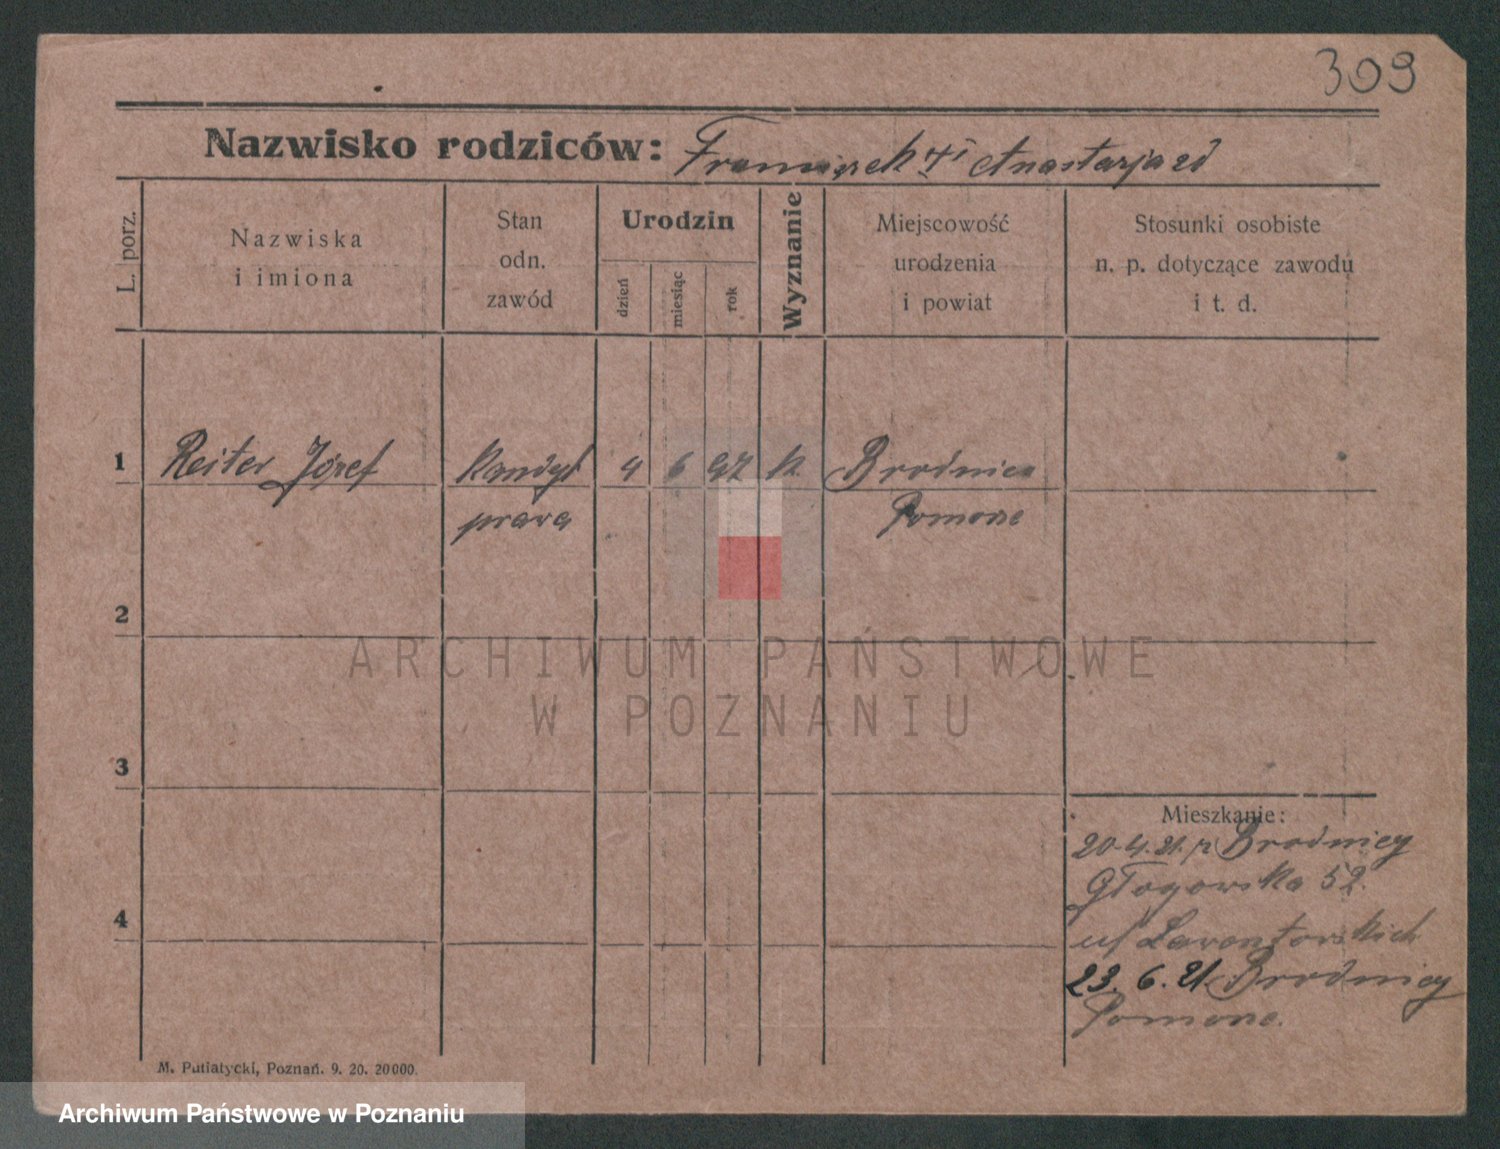 309
Nazwisko rodziców: Franciszek † i Anastazja zd
L. porz.
Nazwiska
i imiona
Stan
odn.
zawód
Urodzin
dzień
miesiąc
rok
Wyznanie
Miejscowość
urodzenia
i powiat
Stosunki osobiste
n. p. dotyczące zawodu
i t. d.
1 Reiter Józef Kandyd 4 6 97 k. Brodnica
prawa Pomorze
2
3
4
Mieszkanie:
20.4.21. z Brodnicy
Głogowska 52.
u/
23. 6. 21 Brodnicy
Pomorze.
M. Putiatycki, Poznań. 9. 20. 20000.
ARCHIWUM PAŃSTWOWE
W POZNANIU
Archiwum Państwowe w Poznaniu